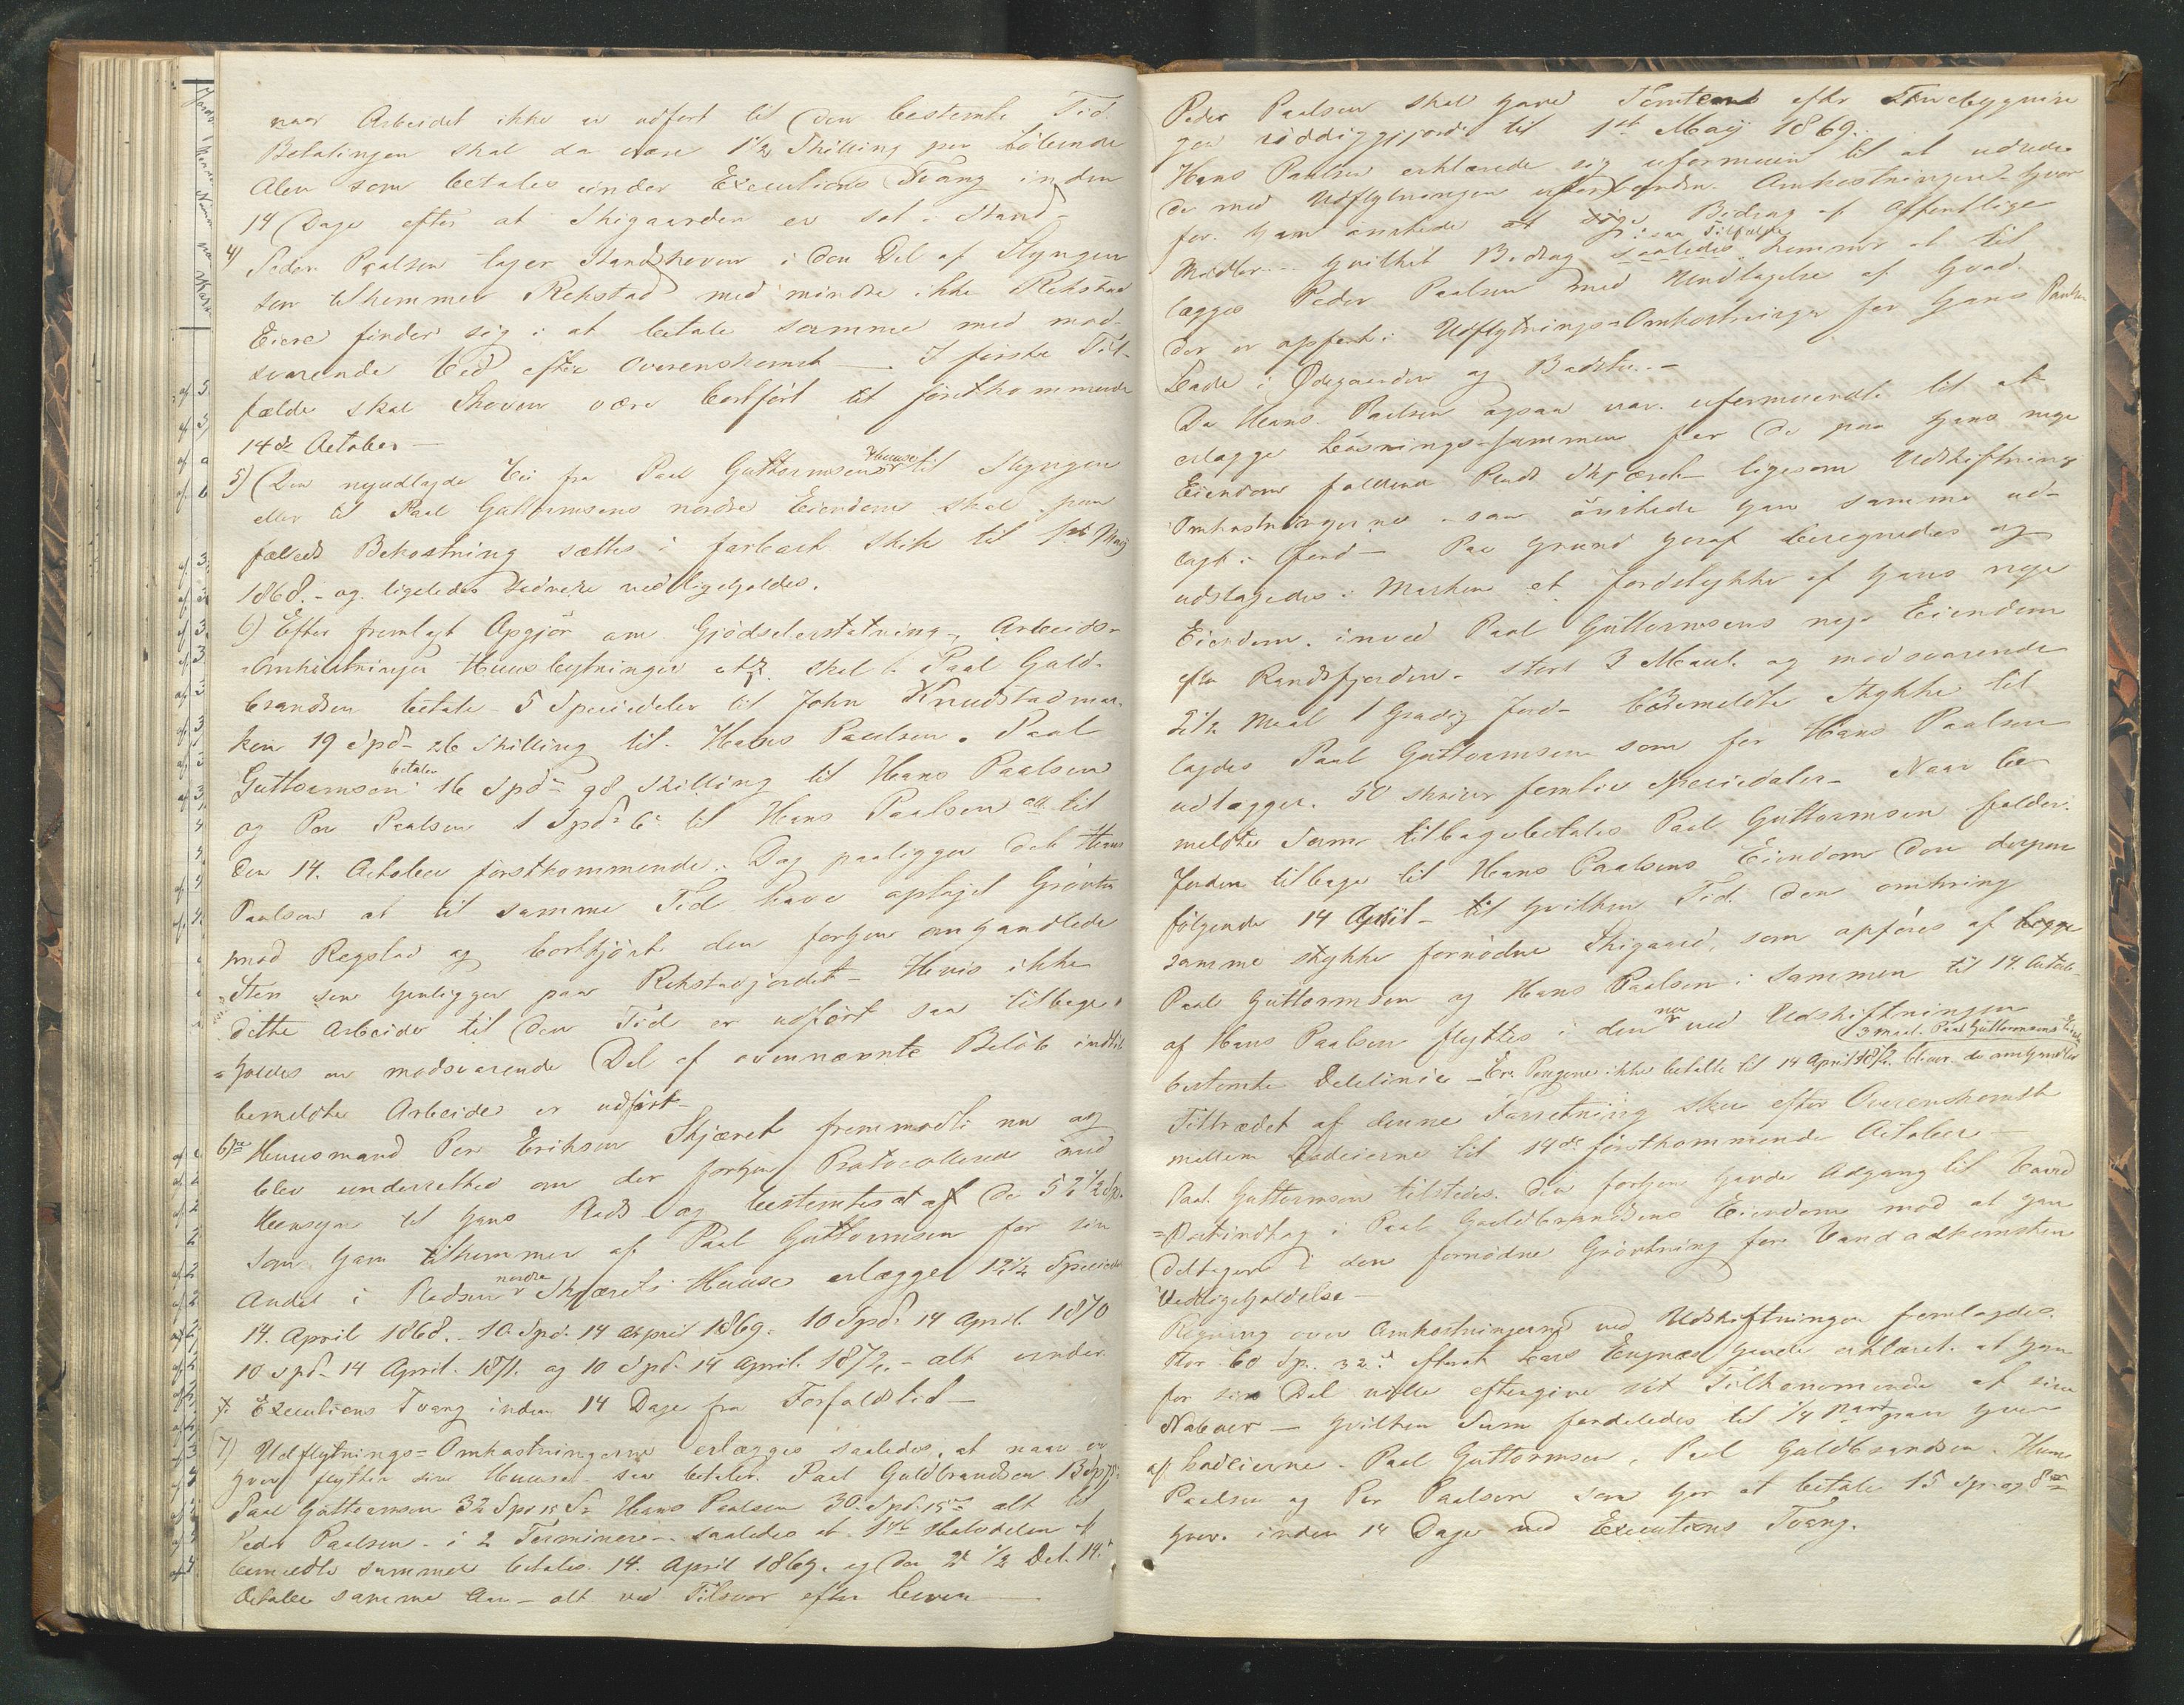 naar Arbeidet ikke er udført til den bestemte Tid.
Betalingen skal da være 1½ Skilling per løbende
Alen som betales under Executions Tvang inden
14 Dage efter at Skigaarden er sat i Stand-
4) Peder Paalsen tager Standskoven i den Del af Slyngen
som tilkommer Rekstad med mindre ikke Rekstad
Eiere finder sig i at betale samme med mod-
svarende Ved efter Overenskomst — I første Til-
fælde skal Skoven være bortført til førstkommende
14de October —
5) Den nyudlagde Vei fra Paal Guttormsens Huuse til Slyngen
eller til Paal Guttormsens nordre Eiendom skal paa
fælleds Bekostning sættes i farbart Skik til 1ste Maij
1868. - og ligeledes vedligeholdes.
6) Efter fremlagt Opgjør om Gjødselerstatning, Arbeids-
-Omkostninger Huusbygninger skal Paal Guld-
brandsen betale 5 Speciedaler til John Knudstadmar-
ken 19 Spd- 26 Skilling til Hans Paulsen. Paal
Guttormsen betaler 16 Spd= 98 Skilling til Hans Paalsen
og Per Paalsen 1 Spd= til Hans Paalsen alt til
den 14. October førstkommende. Dog paaligger det Hans
Paalsen at til samme Tid have optaget Grøvten
mod Regstad og bortkjørt den forhen omhandlede
Sten som henligger paa Rekstadjordet - Hvis ikke
dette Arbeide til den Tid er udført saa tilbage-
=holdes en modsvarende Del af ovennævnte Beløb indtil
bemeldte Arbeide er udført-
Huusmand Per Eriksen Skjæret fremmødte nu og
blev underrettet om det forhen Protocollerede med
Hensyn til hans Plads og bestemtes at af de 52½ Spd.
som ham tilkommer af Paal Guttormsen for sin
Andel i Pladsen nordre Skjærets Huuse erlægges 12½ Specied
14. April 1868. - 10 Spd. 14 April 1869. 10 Spd. 14 April 1870
10 Spd- 14 April 1871. og 10 Spd- 14 April 1872. - alt under
Executions Tvang inden 14 Dage fra Forfaldstid -
7) Udflytnings=Omkostningerne erlægges saaledes, at naar en
hver flytter sine Huuse saa betaler Paal Guldbrandsen 13 Sp
Paal Guttormsen 32 Spd 15 S. Hans Paalsen 30 Spd. alt til
Peder Paalsen - i 2 Terminer - saaledes at 1ste Halvdelen af
bemeldte Summer betales 14. April 1869. og den 2d ½ Del 14.
October samme Aar - alt ved Tilsvar efter Loven —
Peder Paalsen skal have Tomten efter Fæhuusbygnin-
gen røddiggjjord til 1ste Maij 1869.
Hans Paalsen erklærede sig uformuen til at udrede
de med Udflytningen forbundne Omkostninger hvor
for han ønskede at søge Bidrag af offentlige
Midler - hvilket Bidrag saaledes kommer at til
lægges Peder Paalsen med Undtagelse af hvad
der er opført i Udflytnings=Omkostninger for Hans Paalsen
Lade i Ødegaarden og Badstue. -
Da Hans Paalsen ogsaa var uformuende til at
erlægge Løsnings-Summen for de paa hans nye
Eiendom faldende Plads Skjæret ligesom Udskiftnings
Omkostningerne - saa ønskede han samme ud-
lagt i Jord - Paa Grund heraf beregnedes og
udstagedes i Marken et Jordstykke af hans nye
Eiendom, inved Paal Guttormsens nye Eiendom
efter Randsfjorden - stort 3 Maal. og modsvarende
2½ Maal 1 Gradig Jord - bemeldte Stykke til
lagdes Paal Guttormsen som for Hans Paalsen
udlægger. 50 skriver femtie Speciedaler - Naar be-
meldte Sum tilbagebetales Paal Guttormsen falder
Jorden tilbage til Hans Paalsens Eiendom den derpaa
følgende 14 April - til hvilken Tid den omkring
samme Stykke fornødne Skigaard, som opføres af begge
Paal Guttormsen og Hans Paalsen i Sammen til 14. Octob-
af Hans Paalsen flyttes i den nu ved Udskiftningen
bestemte Delelinie - Ere Pengene ikke betalte til 14 April 1872. bliver de omhandlede
3 Maal. Paal Guttormsens Eiendom
Tiltrædet af denne Forretning skeer efter Overenskomst
mellem Lodeierne til 14de førstkommende October -
Paal Guttormsen tilstedes den forhen havde Adgang til Vand
i Paal Guldbrandsens Eiendom mod at han
deltager i den fornødne Grøvtning for Vandadkomsten
Vedligeholdelse -
Regning over Omkostningerne ved Udskiftningen fremlagdes.
Stor 60 Sp. 32 s efterat Lars havde erklæret at han
for sin Del vilde eftergive sit Tilkommende af sine
Naboer - hvilken Sum fordeledes til 1/4 Part paa hver
af Lodeierne - Paal Guttormsen, Paal Guldbrandsen, Hans
Paalsen og Per Paalsen som har at betale 15 Sp. og 8
hver. inden 14 Dage ved Executions Tvang.